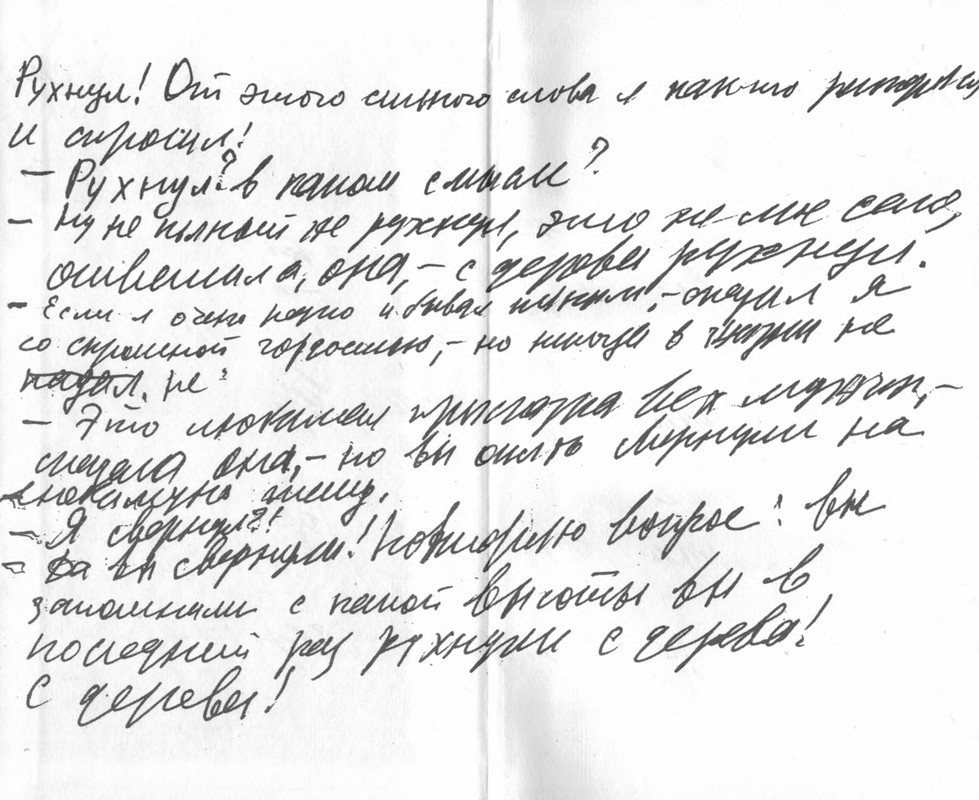 Рухнул! От этого сильного слова я как-то
и спросил!
– Рухнул? в каком смысле?
– Ну не пьяный же рухнул, это не мое село,
ответила, она, – с дерева рухнул.
– Если я очень редко и бывал пьяным, – сказал я
со скромной гордостью, – но никогда в жизни не
падал. не
– Это любимая присказка всех мужчин, –
сказала она, – но вы опять свернули на
любимую тему.
– Я свернул?!
– Да вы свернули! Повторяю вопрос: вы
запомнили с какой высоты вы в
последний раз рухнули с дерева!
С дерева!